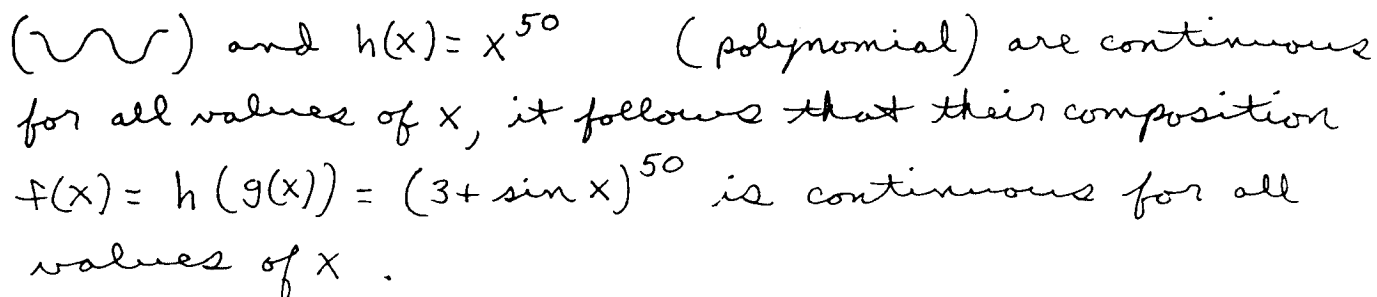 ( ) and h(x) = x^50 (polynomial) are continuous
for all values of x, it follows that their composition
f(x) = h(g(x)) = (3 + sin x)^50 is continuous for all
values of x .